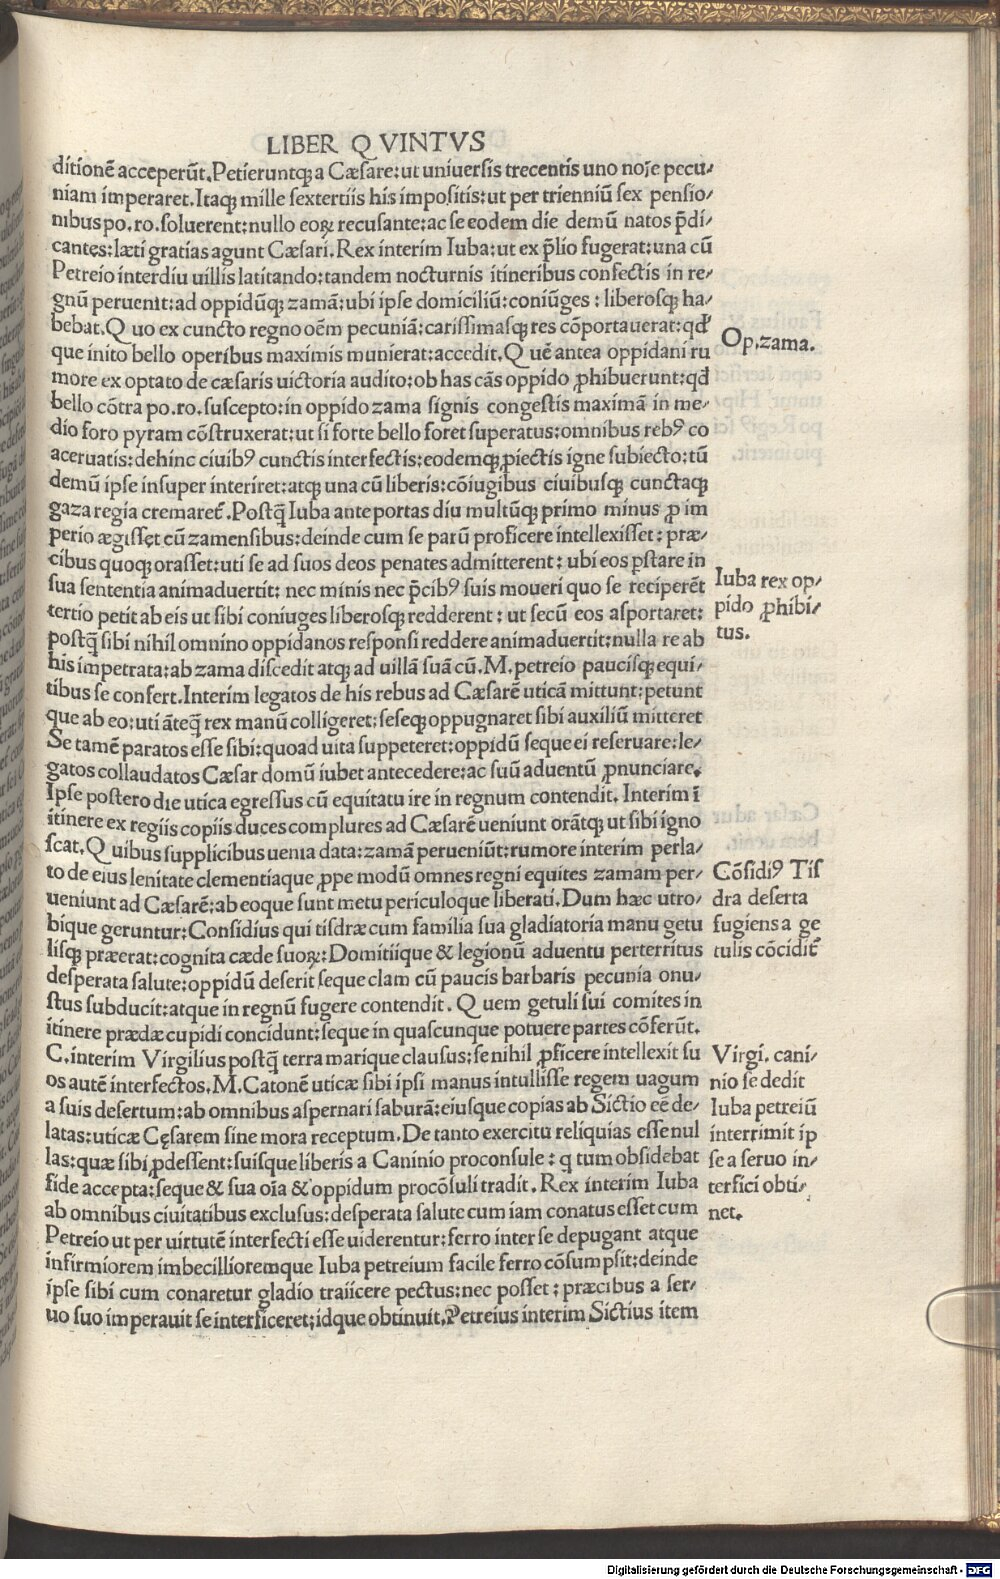 LIBER QVINTVS
ditionē acceperūt. Petieruntqꝫ a Cæsare: ut uniuersis trecentis uno noīe pecu/
niam imperaret. Itaqꝫ mille sextertiis his impositis: ut per trienniū sex pensio/
nibus po. ro. soluerent: nullo eoꝝ recusante: ac se eodem die demū natos p̄di/
cantes: læti gratias agunt Cæsari. Rex interim Iuba: ut ex p̄lio fugerat: una cū
Petreio interdiu uillis latitando: tandem nocturnis itineribus confectis in re/
gnū peruenit: ad oppidūqꝫ zamā: ubi ipse domiciliū: coniūges: liberosqꝫ ha/
bebat. Quo ex cuncto regno oēm pecuniā: carissimasqꝫ res cōportauerat: qđ
que inito bello operibus maximis munierat: accedit. Quē antea oppidani ru
more ex optato de cæsaris uictoria audito: ob has cās oppido ꝓhibuerunt: qđ
bello cōtra po. ro. suscepto: in oppido zama signis congestis maximā in me/
dio foro pyram cōstruxerat: ut si forte bello foret superatus: omnibus rebꝰ co
aceruatis: dehinc ciuibꝰ cunctis interfectis: eodemqꝫ ꝓiectis igne subiecto: tū
demū ipse insuper interiret: atqꝫ una cū liberis: cōiugibus ciuibusqꝫ cunctaqꝫ
gaza regia cremaret̄. Postq̄ Iuba ante portas diu multūqꝫ primo minus ꝓ im
perio ægisset cū zamensibus: deinde cum se parū proficere intellexisset: præ/
cibus quoqꝫ orasset: uti se ad suos deos penates admitterent: ubi eos ꝑstare in
sua sententia animaduertit: nec minis nec p̄cibꝰ suis moueri quo se reciperēt
tertio petit ab eis ut sibi coniuges liberosqꝫ redderent: ut secū eos asportaret:
postq̄ sibi nihil omnino oppidanos responsi reddere animaduertit: nulla re ab
his impetrata: ab zama discedit atqꝫ ad uillā suā cū. M. petreio paucisqꝫ equi/
tibus se confert. Interim legatos de his rebus ad Cæsarē uticā mittunt: petunt
que ab eo: uti āteq̄ rex manū colligeret: seseqꝫ oppugnaret sibi auxiliū mitteret
Se tamē paratos esse sibi: quoad uita suppeteret: oppidū seque ei reseruare: le/
gatos collaudatos Cæsar domū iubet antecedere: ac suū aduentū ꝓnunciare.
Ipse postero die utica egressus cū equitatu ire in regnum contendit. Interim ī
itinere ex regiis copiis duces complures ad Cæsarē ueniunt orātqꝫ ut sibi igno
scat. Quibus supplicibus uenia data: zamā perueniūt: rumore interim perla/
to de eius lenitate clementiaque ꝓpe modū omnes regni equites zamam per/
ueniunt ad Cæsarē: ab eoque sunt metu periculoque liberati. Dum hæc utro/
bique geruntur: Considius qui tisdræ cum familia sua gladiatoria manu getu
lisqꝫ præerat: cognita cæde suoꝝ: Domitiique & legionū aduentu perterritus
desperata salute: oppidū deserit seque clam cū paucis barbaris pecunia onu/
stus subducit: atque in regnū fugere contendit. Quem getuli sui comites in
itinere prædæ cupidi concidunt: seque in quascunque potuere partes cōferūt.
C. interim Virgilius postq̄ terra marique clausus: se nihil ꝓficere intellexit su
os autē interfectos. M. Catonē uticæ sibi ipsi manus intullisse regem uagum
a suis desertum: ab omnibus aspernari saburā: eiusque copias ab Sictio eē de/
latas: uticæ Cęsarem sine mora receptum. De tanto exercitu reliquias esse nul
las: quæ sibi ꝓdessent: suisque liberis a Caninio proconsule: q tum obsidebat
fide accepta: seque & sua oīa & oppidum procōsuli tradit. Rex interim Iuba
ab omnibus ciuitatibus exclusus: desperata salute cum iam conatus esset cum
Petreio ut per uirtutē interfecti esse uiderentur: ferro inter se depugant atque
infirmiorem imbecillioremque Iuba petreium facile ferro cōsumpsit: deinde
ipse sibi cum conaretur gladio traiicere pectus: nec posset: præcibus a ser/
uo suo imperauit se interficeret: idque obtinuit. Petreius interim Sictius item
Op. zama.
Iuba rex op/
pido ꝓhibi/
tus.
Cōsidiꝰ Tis
dra deserta
fugiens a ge
tulis cōcidit̄
Virgi. cani/
nio se dedit
Iuba petreiū
interrimit ip
se a seruo in/
terfici obti/
net.
Digitalisierung gefördert durch die Deutsche Forschungsgemeinschaft - DFG